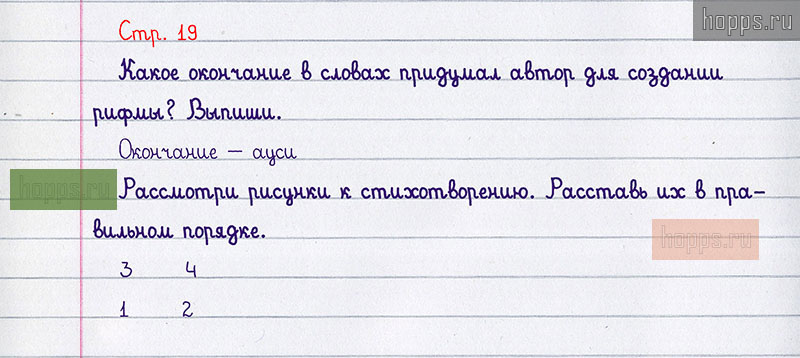 hopps.ru
Стр. 19
Какое окончание в словах придумал автор для создании
рифмы? Выпиши.
Окончание – ауси
hopps.ru
Рассмотри рисунки к стихотворению. Расставь их в пра-
вильном порядке.
hopps.ru
3 4
1 2